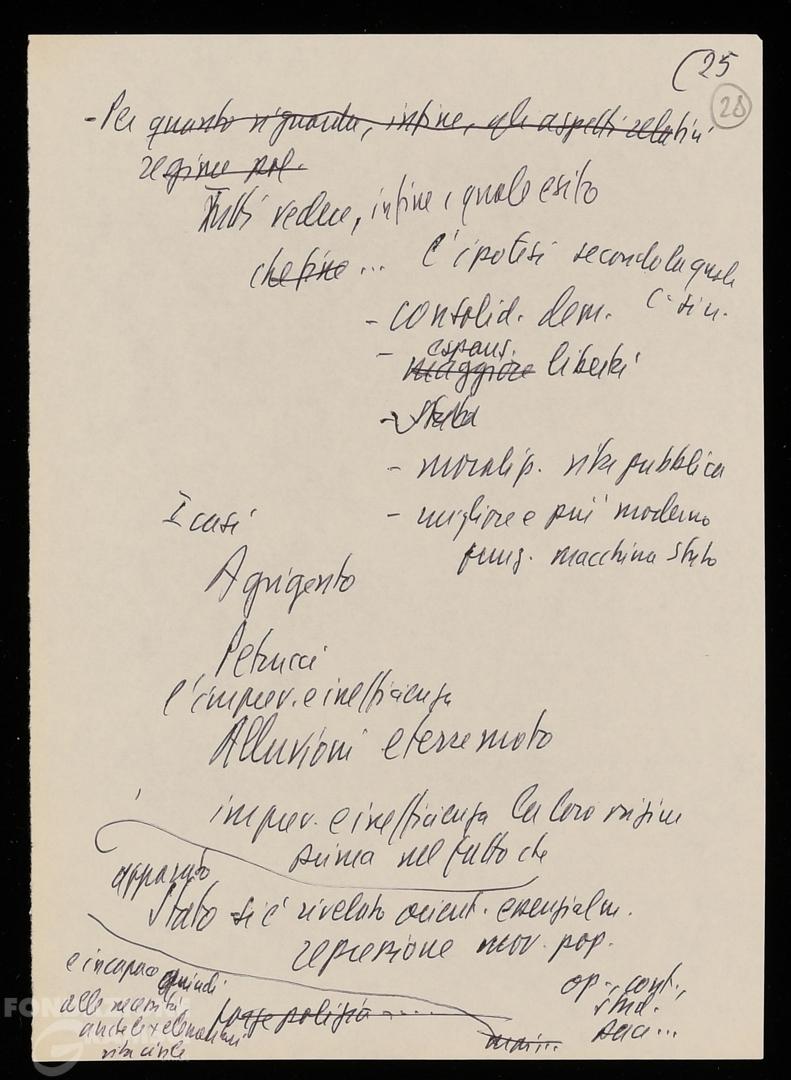 (25
28
- Per quanto riguarda, infine, gli aspetti relativi
regime pol.
Tutti vedere, infine, quale esito
che fine ... C'è ipotesi secondo la quale
- consolid. dem. c. sin.
espans.
- maggiore libertà
- Stato
- moralizz. vita pubblica
- migliore e più moderno
funz. macchina Stato
I casi
Agrigento
Petrucci
l'imprev. e inefficienza
Alluvioni e terremoto
imprev. e inefficienza la loro origine
prima nel fatto che
apparato
Stato si è rivelato orient. essenzialm.
repressione mov. pop.
e incapace quindi
op., cont.,
alle necessità
forze polizia ....
stud.
anche le + elementari
vita civile